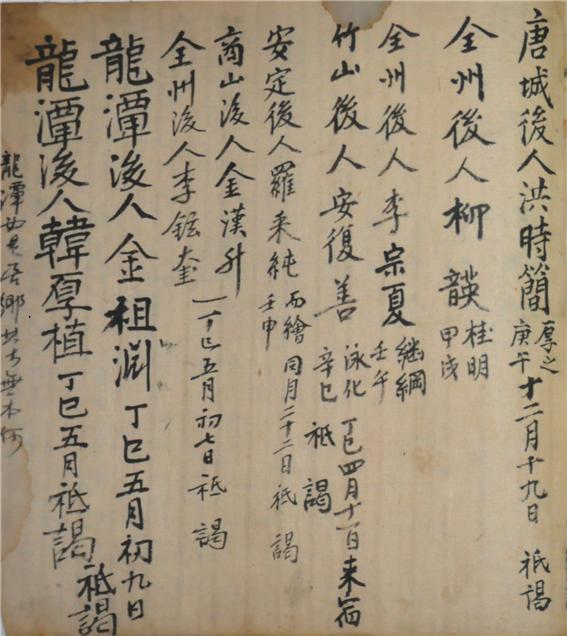 唐城後人洪時簡 厚之 庚午 十二月十九日 祗謁
全州後人柳韺 桂明 甲戌
全州後人李宗夏 繼綱 壬午
竹山後人安復善 泳化 辛巳 丁巳四月十一日來宿 祗謁
安定後人羅采純 丙繪 壬申 同月二十二日祗謁
商山後人金漢升
全州後人李鋐奎 丁巳五月初七日祗謁
龍潭後人金祖淵丁巳五月初九日祗謁
龍潭後人韓厚植丁巳五月祗謁
龍潭 吾鄉